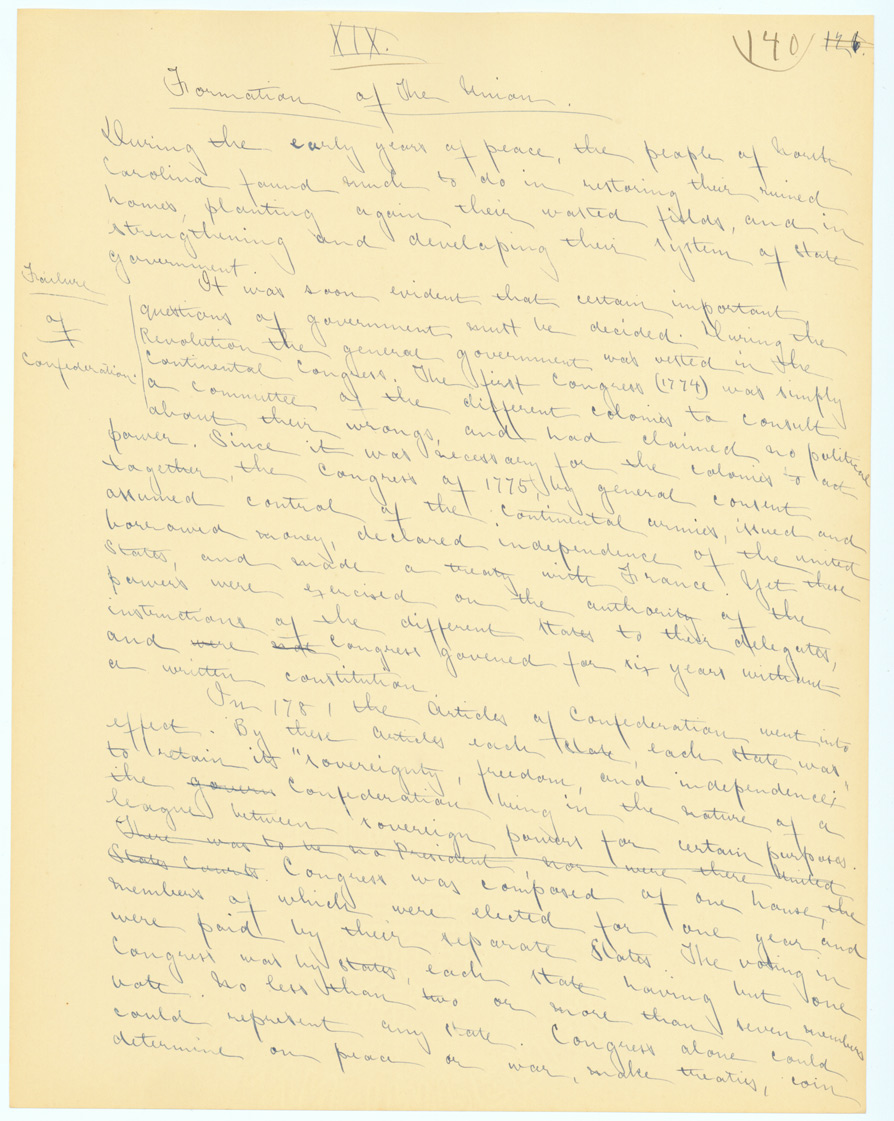 XIX.
140 126.
Formation of The Union.
During the early years of peace, the people of North
Carolina found much to do in restoring their ruined
homes, planting again their wasted fields, and in
strengthening and developing their system of state
government.
Failure
of
Confederation.
It was soon evident that certain important
questions of government must be decided. During the
Revolution the general government was vested in the
Continental Congress. The first Congress (1774) was simply
a committee of the different colonies to consult
about their wrongs, and had claimed no political
power. Since it was necessary for the colonies to act
together, the Congress of 1775, by general consent
assumed control of the Continental armies, issued and
borrowed money, declared independence of the united
States, and made a treaty with France. Yet these
powers were exercised on the authority of the
instructions of the different states to their delegates,
and were not Congress governed for six years without
a written constitution.
In 1781 the Articles of Confederation went into
effect. By these articles each state, each state was,
to retain its "sovereignty, freedom, and independence;"
the govern Confederation being in the nature of a
league between sovereign powers for certain purposes.
There was to be no President, nor were there United
States Courts. Congress was composed of one house, the
members of which were elected for one year, and
were paid by their separate States. The voting in
Congress was by states, each state having but one
vote. No less than two or more than seven members
could represent any state. Congress alone could
determine on peace or war, make treaties, coin